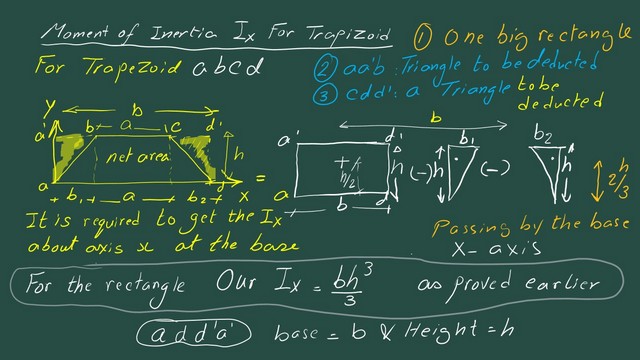 Moment of Inertia Ix For Trapizoid
① One big rectangle
For Trapezoid abcd
② aa'b : Triangle to be deducted
③ cdd' : a Triangle to be deducted
Y
b
a' b a c d'
net area
h
a d x
b1 a b2
=
b
a' d'
h
h/2
a b d
(-) h b1
(-) b2 h
2/3 h
It is required to get the Ix
about axis x at the base
Passing by the base
X-axis
For the rectangle Our Ix = bh³/3 as proved earlier
add'a' base = b & Height = h